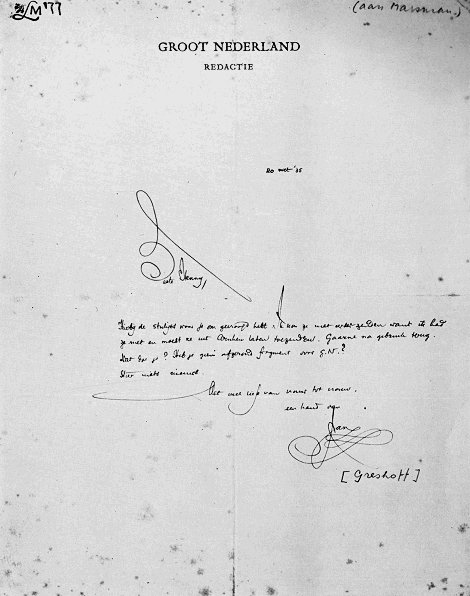 LM '77
(aan Marsman)
GROOT NEDERLAND
REDACTIE
20 mei '35
Beste Henny,
Hierbij de stukjes waar je om gevraagd hebt. Ik kon ze niet eerder zenden want ik had
ze niet en moest ze uit Arnhem laten toezenden. Gaarne na gebruik terug.
Wat doe je? Heb je geen afgerond fragment voor G.N.?
Hier niets nieuws.
Met veel liefs van vrouw tot vrouw,
een hand van
Jan
[Greshoff]